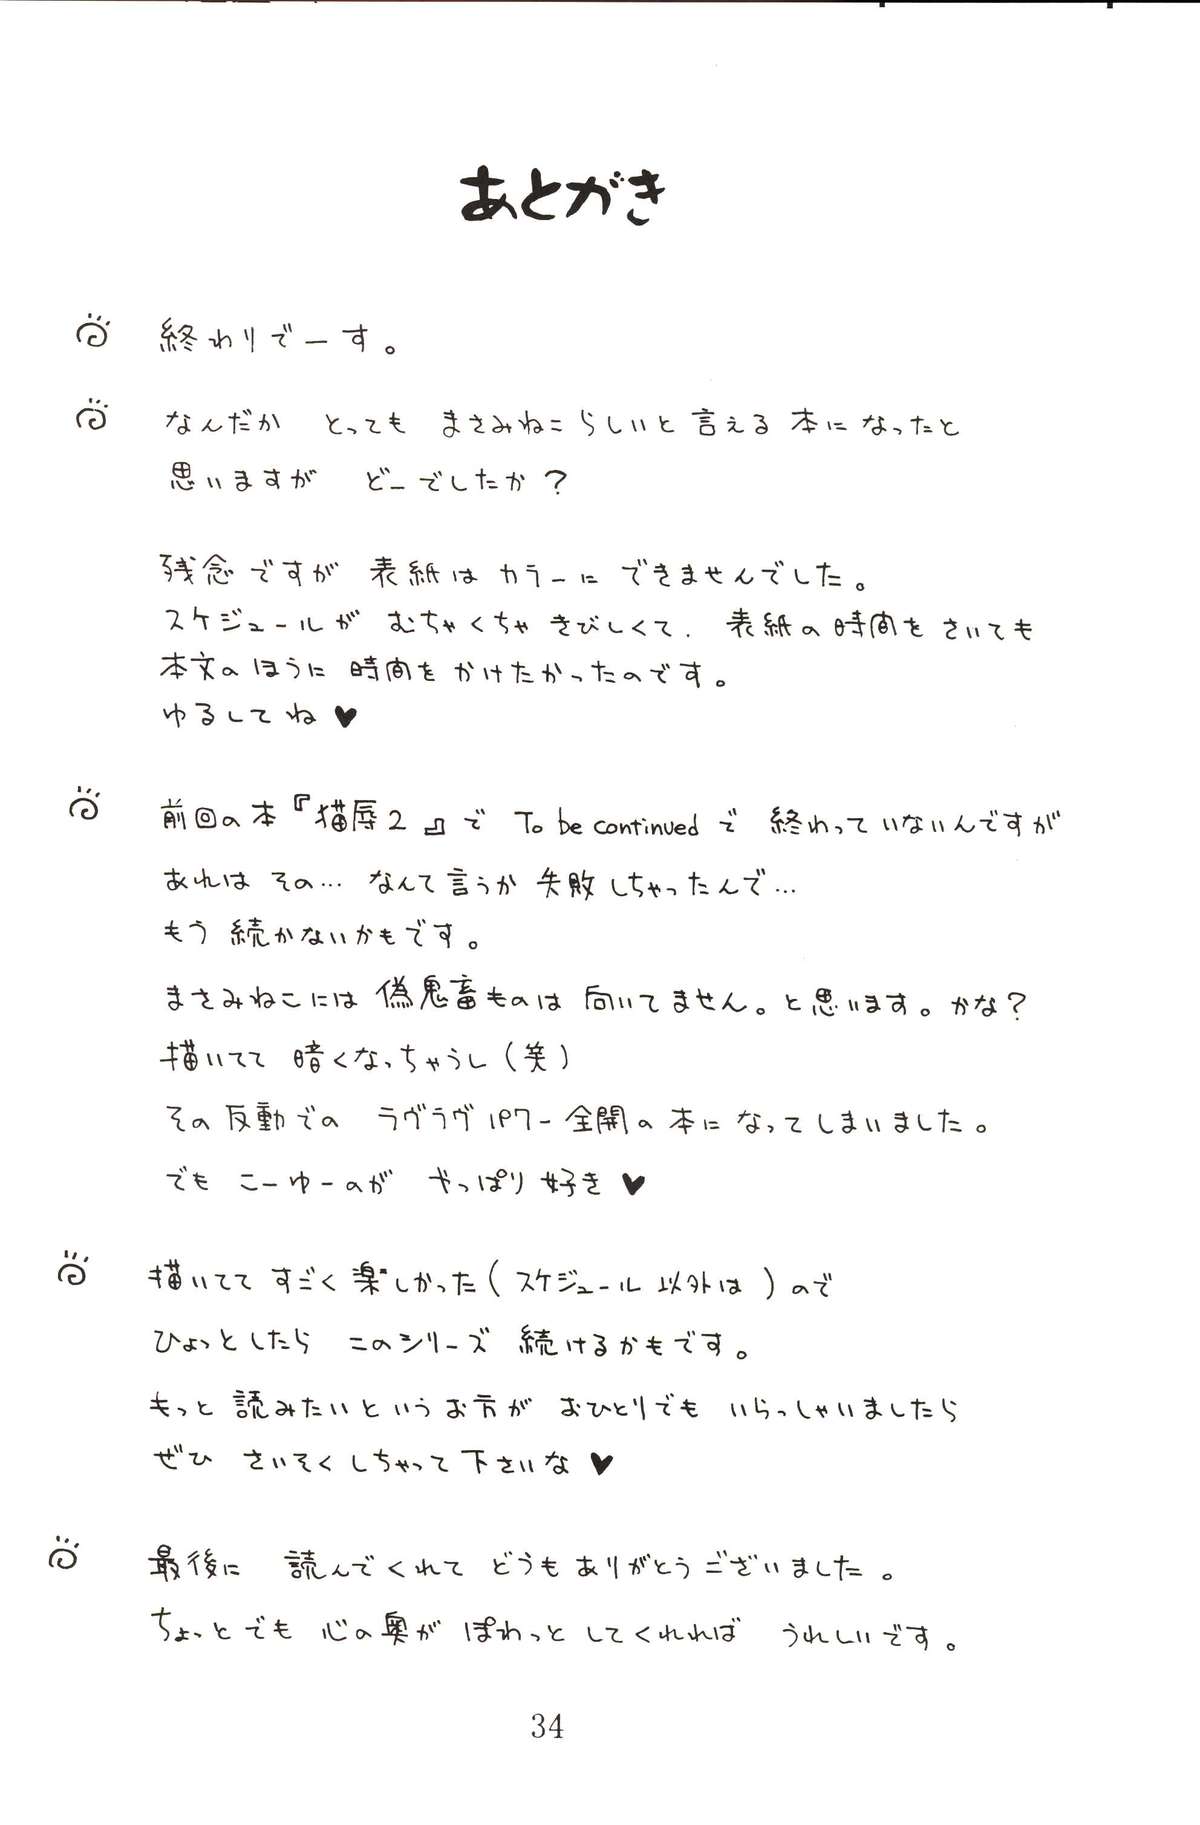 あとがき
終わりでーす。
なんだか とっても まさみねこらしいと言える本になったと
思いますが どーでしたか？
残念ですが 表紙はカラーにできませんでした。
スケジュールが むちゃくちゃきびしくて. 表紙の時間をさいても
本文のほうに時間をかけたかったのです。
ゆるしてね♥
前回の本『猫辱2』で To be continued で 終わっていないんですが
あれは その… なんて言うか 失敗しちゃったんで…
もう 続かないかもです。
まさみねこには偽鬼畜ものは向いてません。と思います。かな？
描いてて 暗くなっちゃうし（笑）
その反動での ラヴラヴパワー全開の本になってしまいました。
でも こーゆーのが やっぱり好き♥
描いてて すごく楽しかった（スケジュール以外は）ので
ひょっとしたら このシリーズ 続けるかもです。
もっと 読みたいというお方が おひとりでも いらっしゃいましたら
ぜひ さいそくしちゃって下さいな♥
最後に 読んでくれて どうもありがとうございました。
ちょっとでも 心の奥が ぽわっとしてくれれば うれしいです。
34